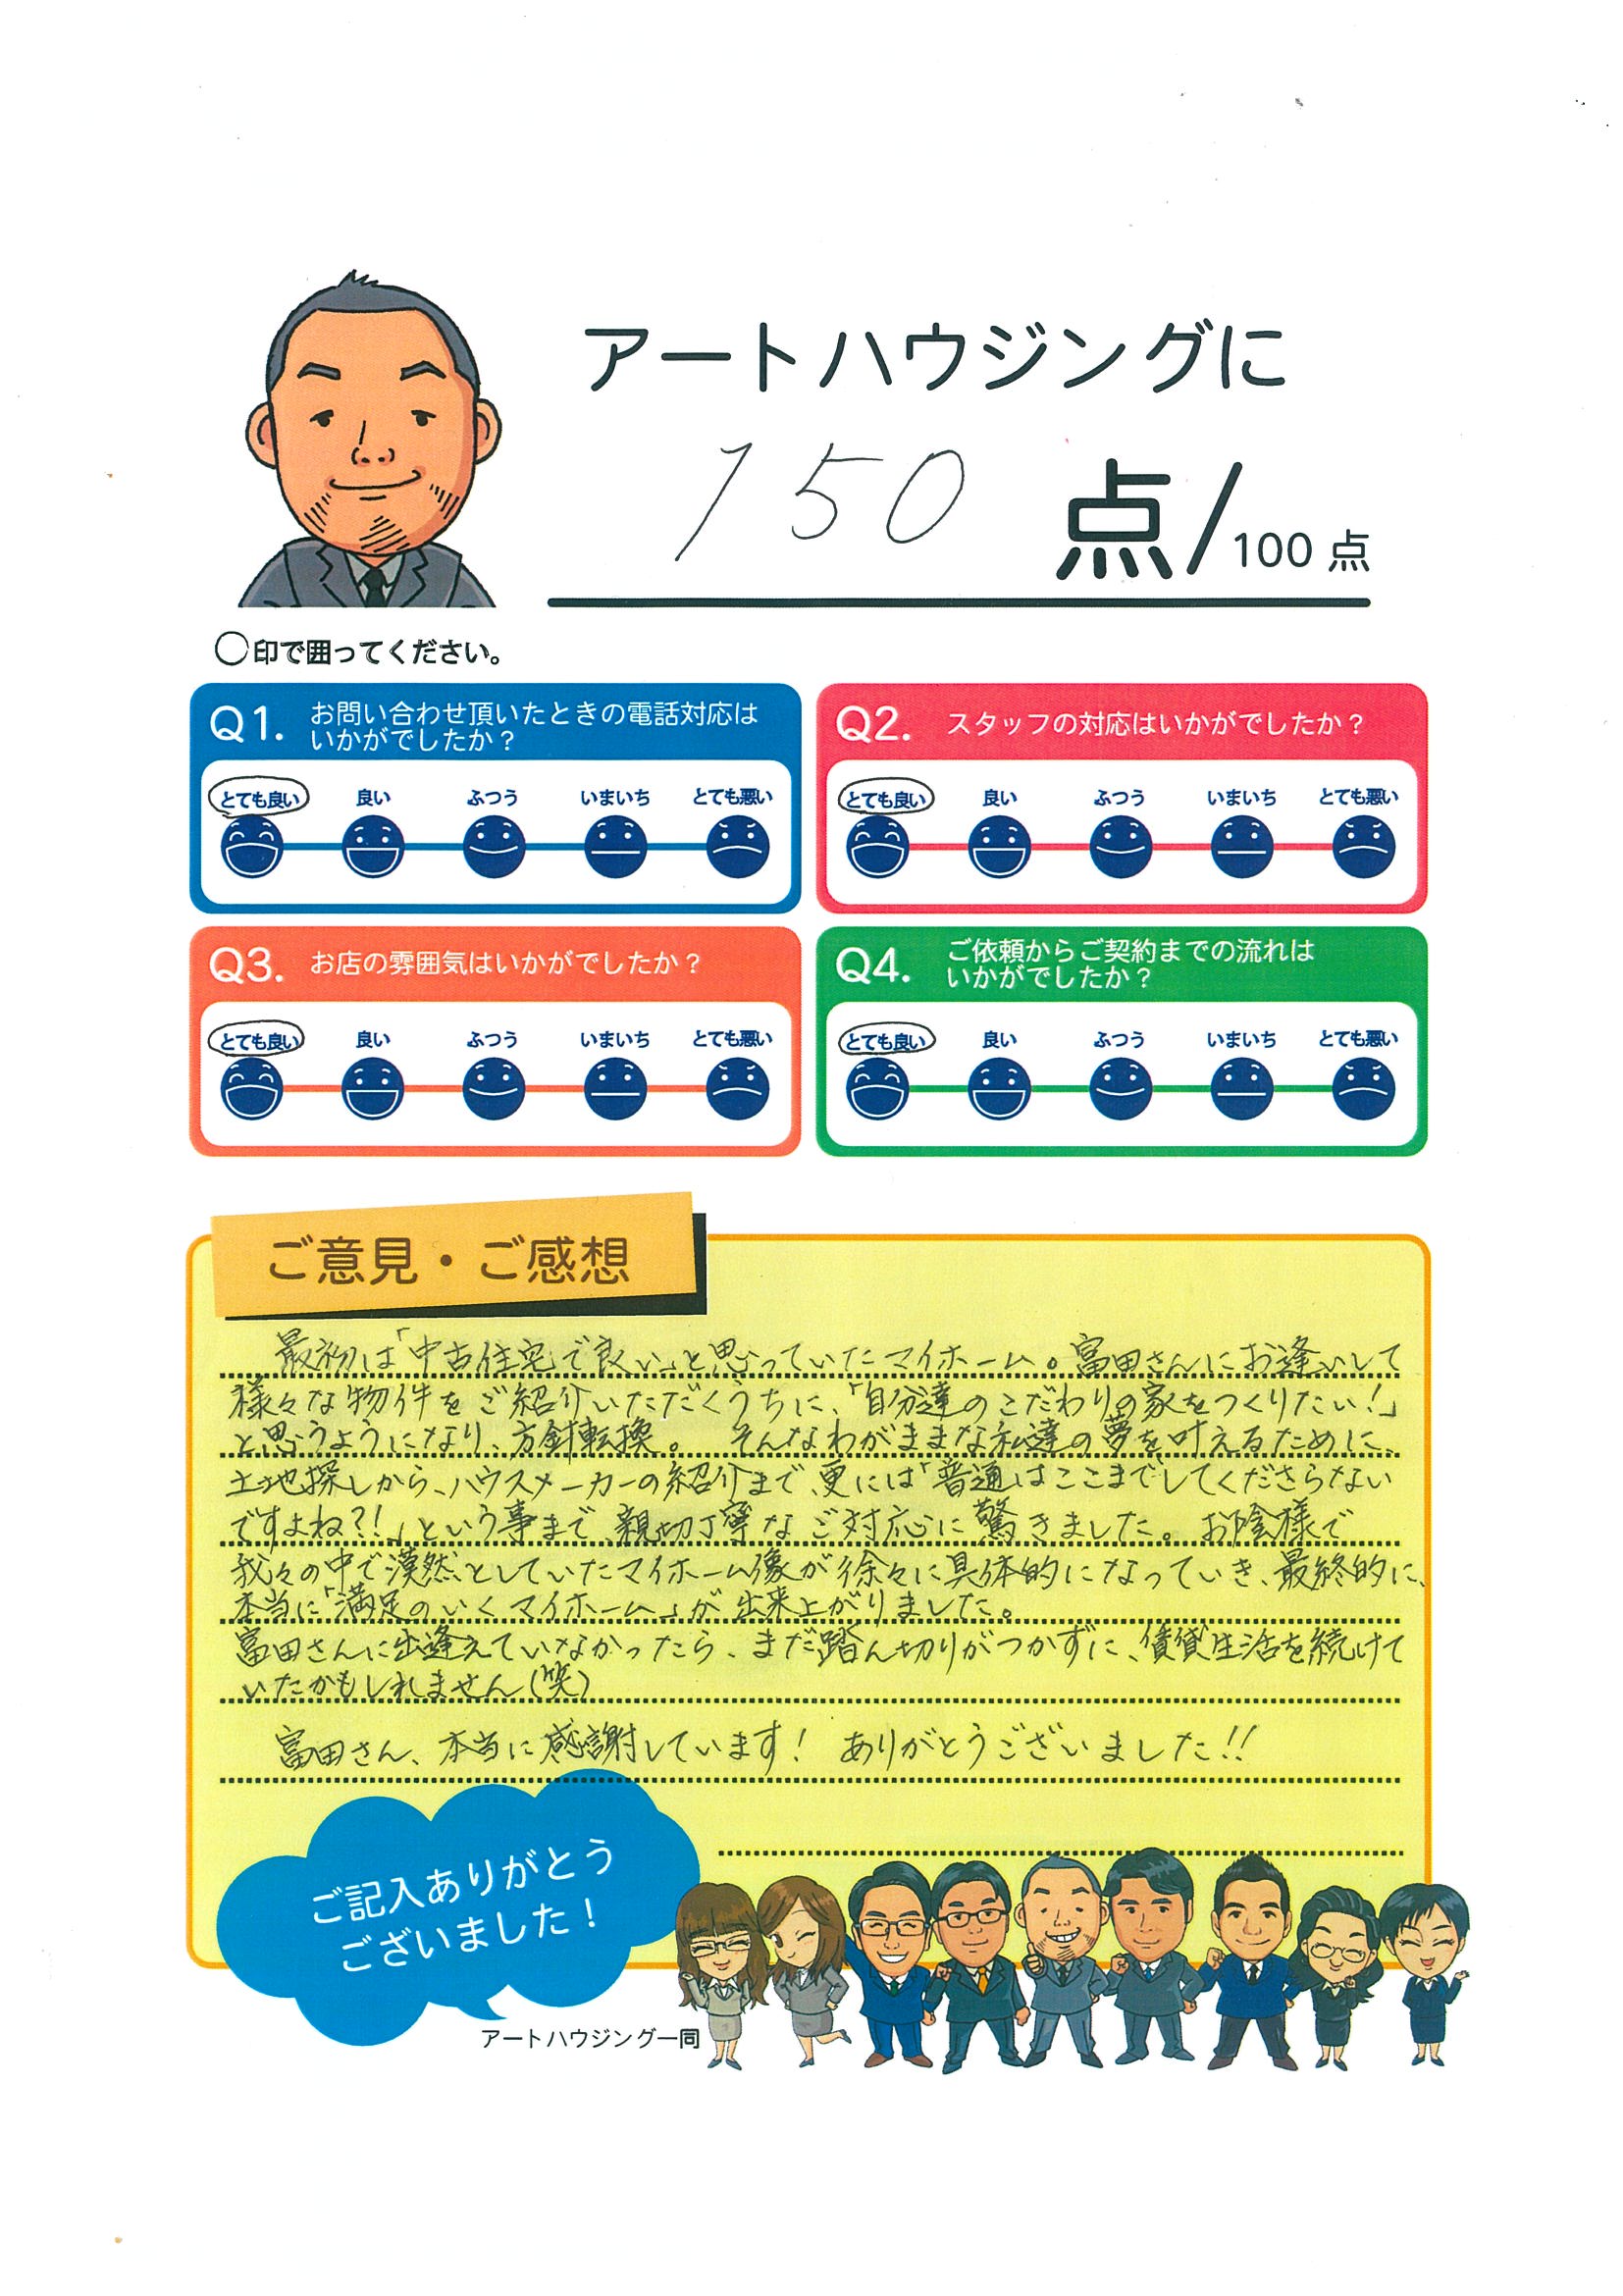 アートハウジングに
150 点/100 点
○印で囲ってください。
Q1. お問い合わせ頂いたときの電話対応は
いかがでしたか？
とても良い 良い ふつう いまいち とても悪い
Q2. スタッフの対応はいかがでしたか？
とても良い 良い ふつう いまいち とても悪い
Q3. お店の雰囲気はいかがでしたか？
とても良い 良い ふつう いまいち とても悪い
Q4. ご依頼からご契約までの流れは
いかがでしたか？
とても良い 良い ふつう いまいち とても悪い
ご意見・ご感想
最初は「中古住宅で良い」と思っていたマイホーム。富田さんにお逢いして
様々な物件をご紹介いただくうちに、「自分達のこだわりの家をつくりたい！」
と思うようになり、方針転換。 そんなわがままな私達の夢を叶えるために、
土地探しから、ハウスメーカーの紹介まで、更には「普通はここまでしてくださらない
ですよね？！」という事まで、親切丁寧なご対応に驚きました。お陰様で
我々の中で漠然としていたマイホーム像が徐々に具体的になっていき、最終的に、
本当に「満足のいくマイホーム」が出来上がりました。
富田さんに出逢えていなかったら、まだ踏ん切りがつかずに、賃貸生活を続けて
いたかもしれません（笑）
富田さん、本当に感謝しています！ ありがとうございました！！
ご記入ありがとう
ございました！
アートハウジング一同